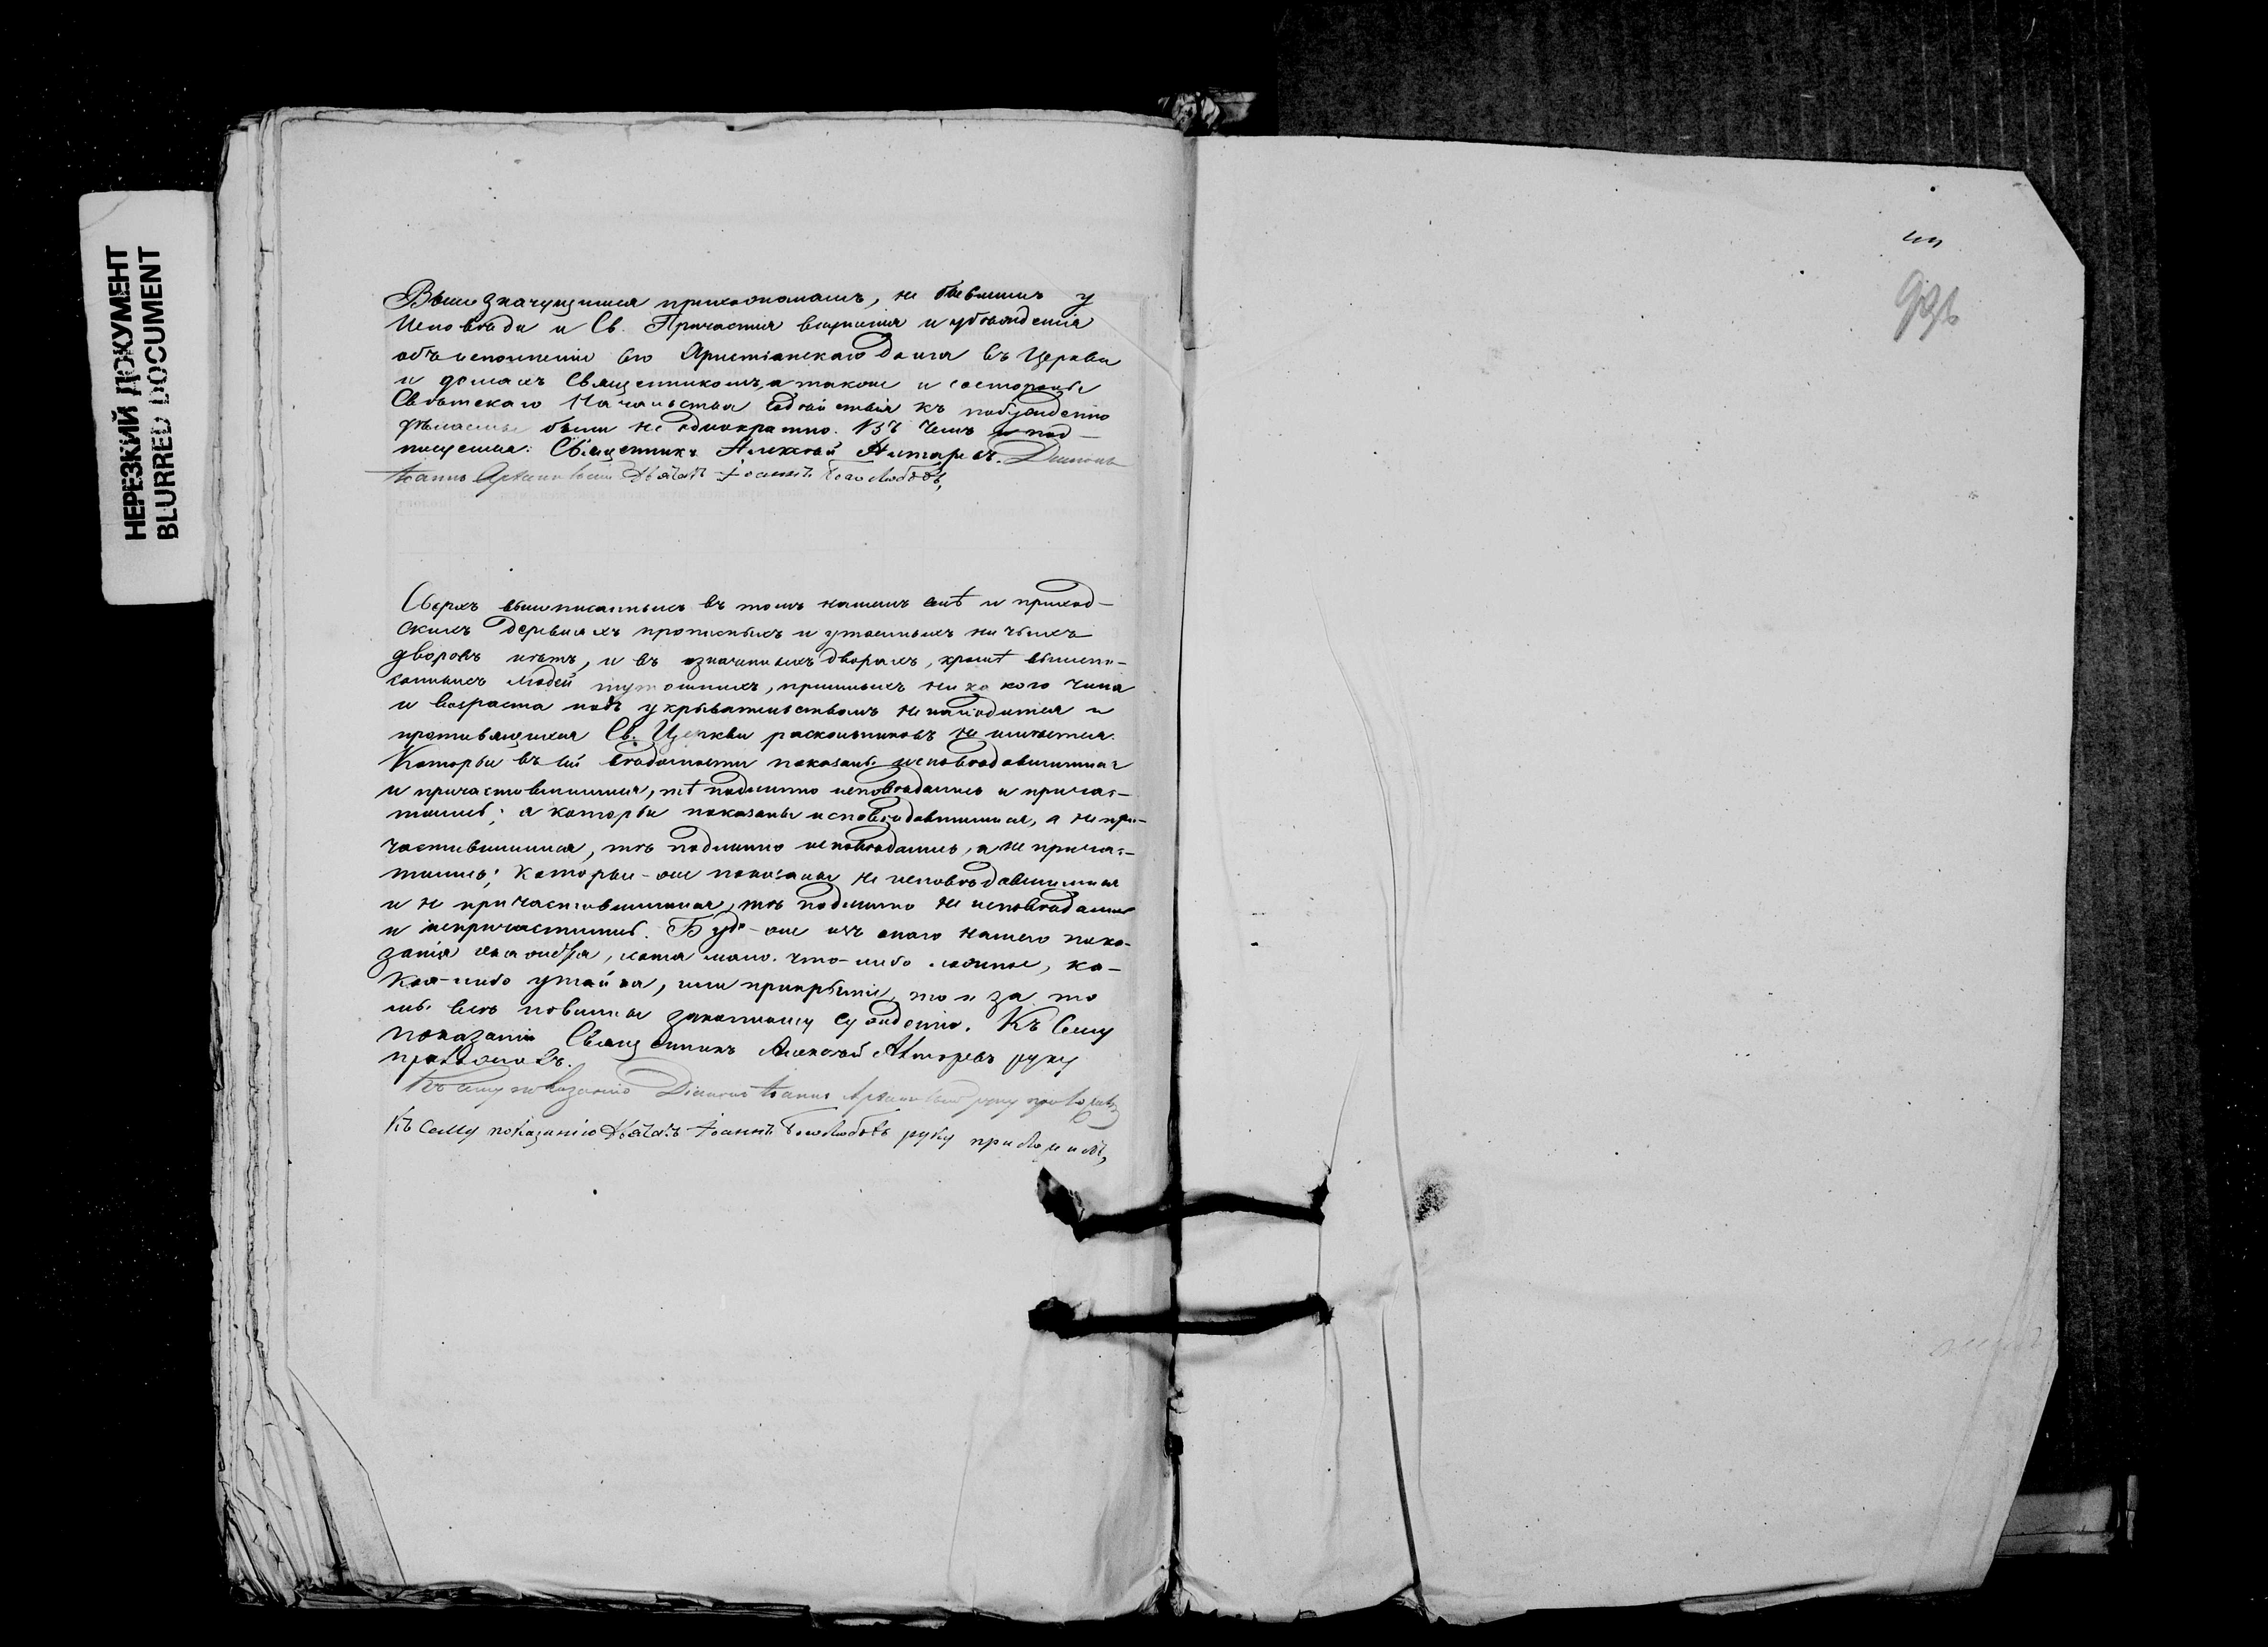 НЕРЕЗКИЙ ДОКУМЕНТ
BLURRED DOCUMENT
Вышезначущимся прихожанамъ, не бывшимъ у
Исповѣди и Св. Причастія внушенія и убѣжденія
объ исполненіи его Христіанскаго долга въ Церкви
и домахъ Священникомъ, а также и со стороны
Свѣтскаго Начальства содѣйствія къ побужденію
дѣлаемы были не однократно. Въ чемъ и под-
писуемся: Священникъ Алексѣй Діаконъ
Іоаннъ Дьячекъ Іоаннъ Боголюбовъ,
Сверхъ вышеписанныхъ въ томъ нашемъ селѣ и приход-
скихъ деревняхъ прописныхъ и утаенныхъ ни чьихъ
дворовъ нѣтъ, и въ означенныхъ дворахъ, кромѣ вышепи-
санныхъ людей тутошнихъ, пришлыхъ ни ка кого чина
и возраста подъ укрывательствомъ не находится и
противящихся Св. Церкви раскольниковъ не имѣется.
Которые въ сей вѣдомости показаны исповѣдавшимися
и причастовшимися, тѣ подлинно исповѣдались и причас-
тились; а которые показаны исповѣдавшимися, а не при-
частившимися, тѣ подлинно исповѣдались, а не причас-
тились; которые-же показаны не исповѣдавшимися
и не причастовшимися, тѣ подлинно не исповѣдались
и непричастились. Буде-же изъ онаго нашего пока-
занія явится, хотя мало, что-либо ложное, ка-
кая-либо утайка, или прикрытіе, то и за то
мы всѣ повинны законному сужденію. Къ сему
показанію Священникъ Алексѣй руку
приложилъ.
Къ сему показанію Діаконъ Іоаннъ руку приложилъ
Къ сему показанію Дьячекъ Іоаннъ Боголюбовъ руку приложилъ,